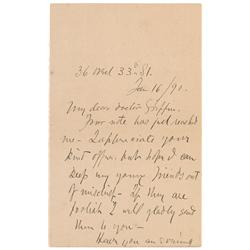 36 West 33rd St.
Jan 16/90.
My dear doctor Griffin.
Your note has just reached
me - I appreciate your
kind offer but hope I can
keep my young friends out
of mischief - If they are
foolish I will gladly send
them to you -
Have you an evening